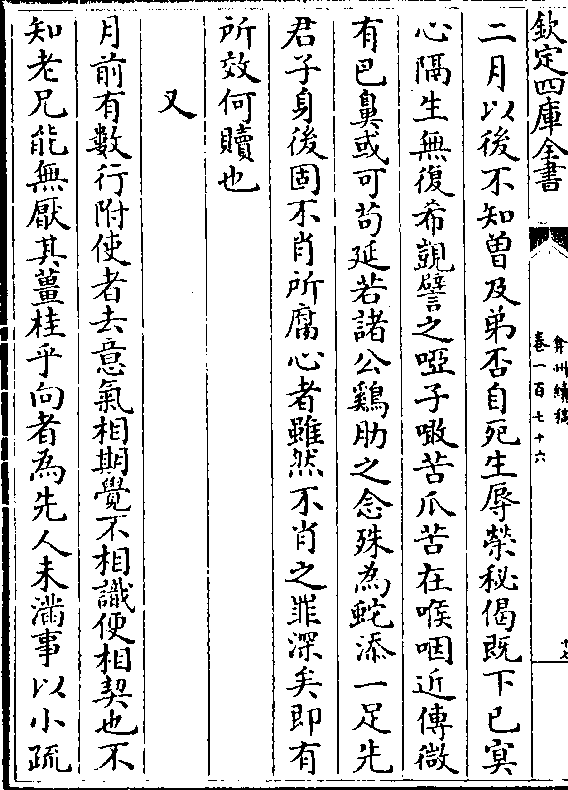 欽定四庫全書
弇州續稿
卷一百七十六
二月以後不知曽及弟否自死生辱榮秘偈既下已寞
心隔生無復希覬譬之啞子噉苦爪苦在喉咽近傳微
有巴鼻或可茍延若諸公鷄肋之念殊為蛇添一足先
君子身後固不肖所腐心者雖然不肖之罪深矣即有
所效何贖也
又
月前有數行附使者去意氣相期覺不相識便相契也不
知老兄能無厭其薑桂乎向者為先人未滿事以小疏